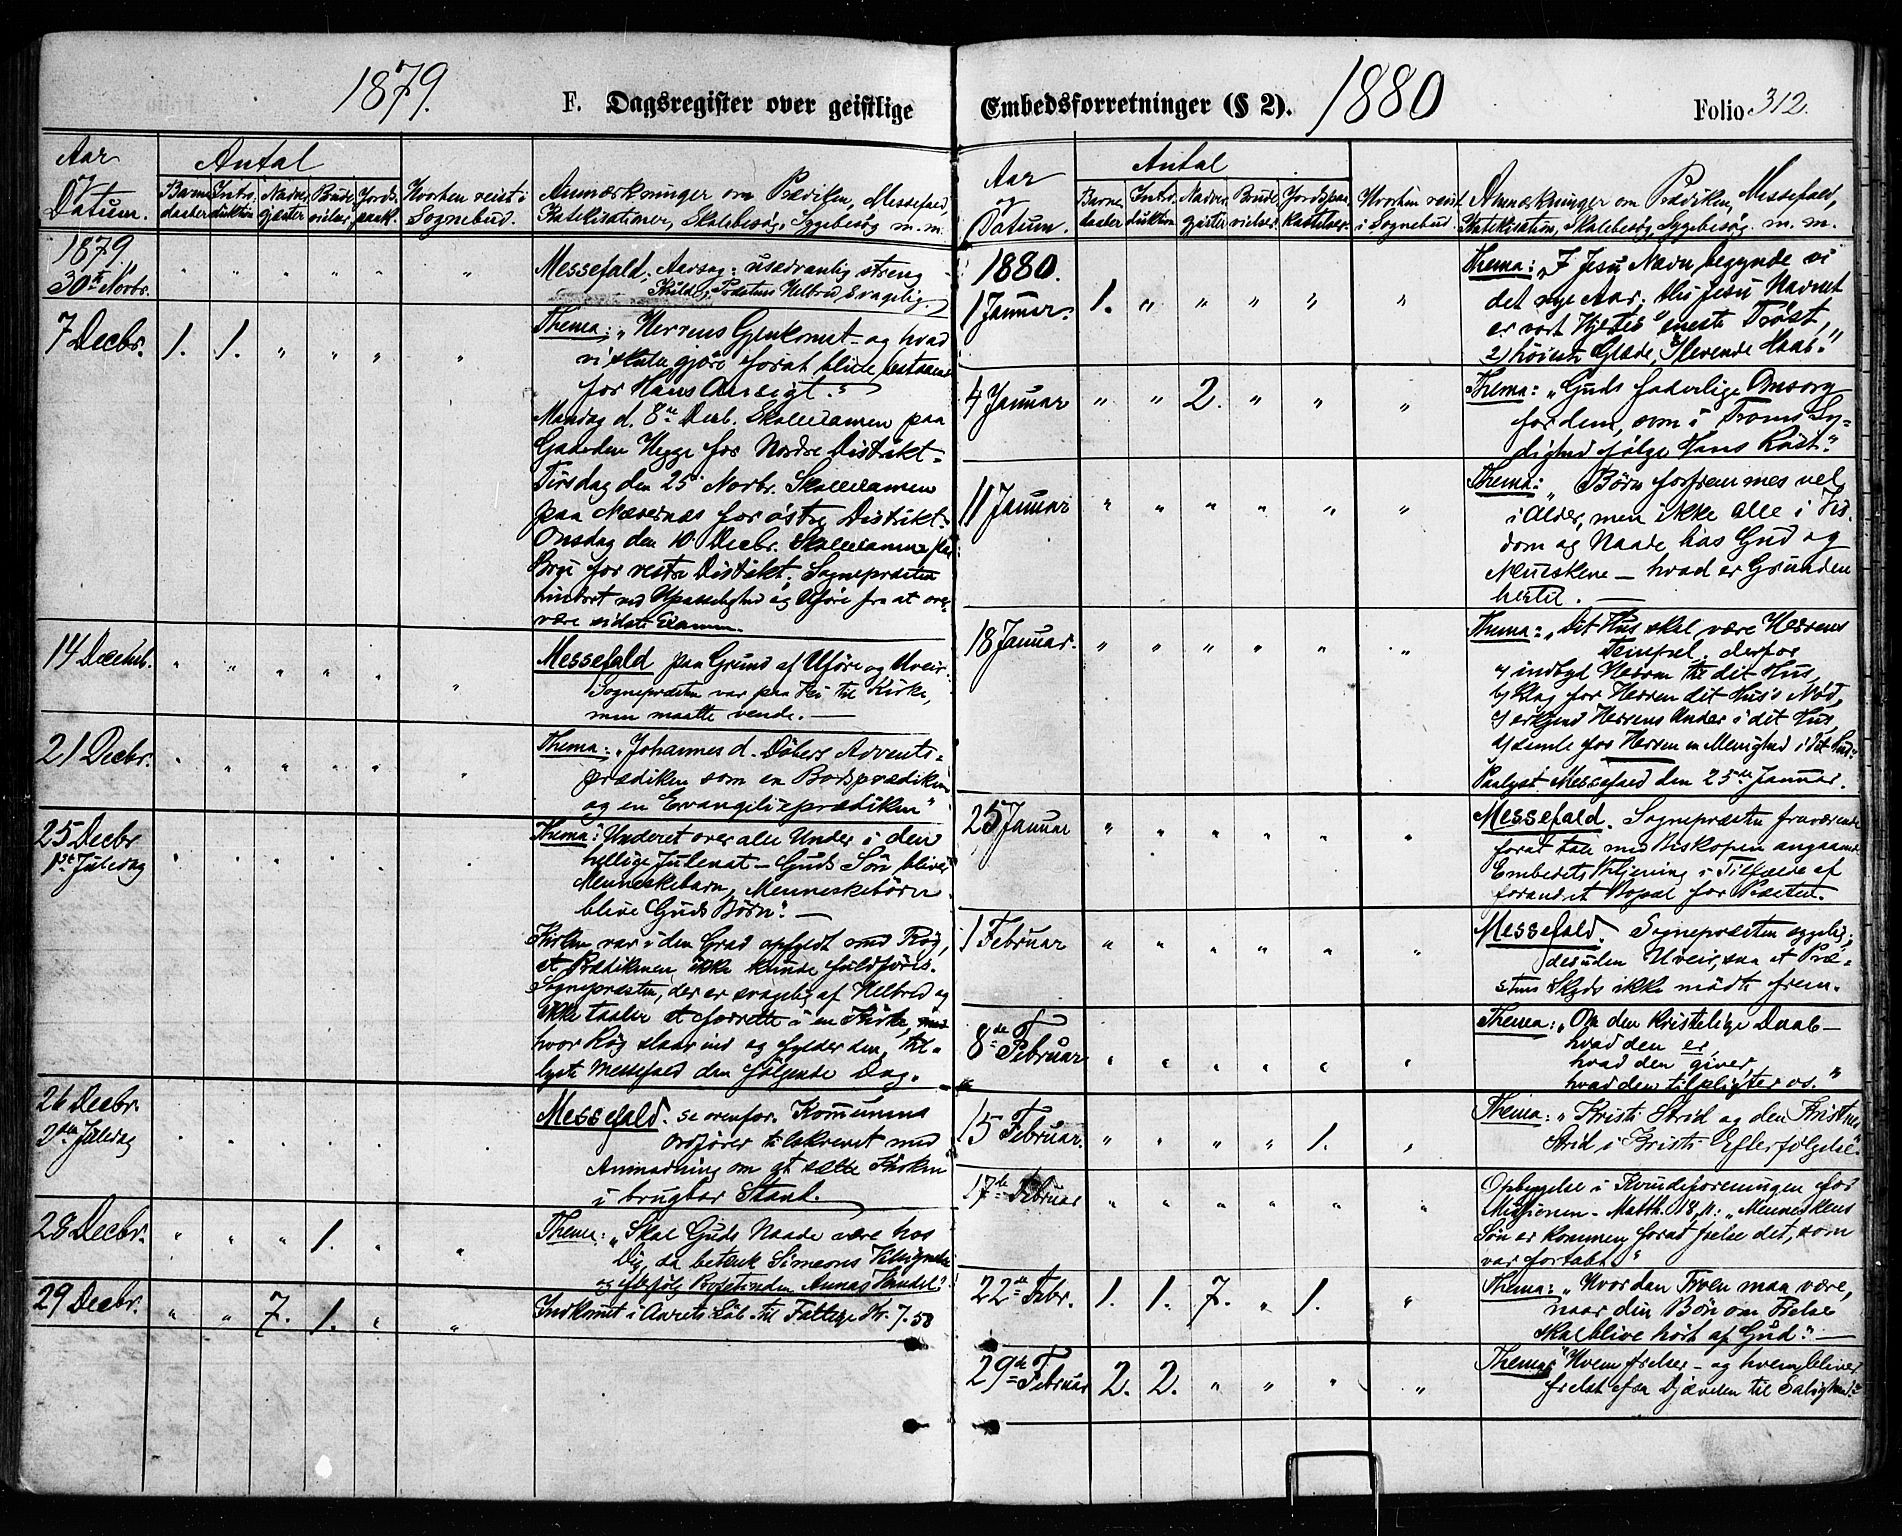 1879.
F. Dagsregister over geistlige
Aar
Antal
Datum.
Barne Intro Nadver Brude Jords
daaber duktion gjæster vielser paak.
Hvorhen reist i
Sognebud.
Anmærkninger om Prædiken, Messefald,
Katekisationer, Skolebesög, Sygebesög m. m.
1879.
30te Novbr. " " " " " "
Messefald. Aarsag: usædvanlig streng
Kulde; Præstens Helbred svagelig.
7 Decbr. 1. 1. " " " "
Thema: "Herrens Gjenkomst - og hvad
vi skulle gjöre forat blive bestaaende
for Hans Ansigt."
Mandag d. 8de Decb. Skoleexamen paa
Gaarden Hegge for Nordre Distrikt.
Tirsdag den 25 Novbr. Skoleexamen
paa Nævernæs for östre Distrikt.
Onsdag den 10 Decbr. Skoleexamen paa
Borge for vestre Distrikt. Sognepræsten
hindret ved Upasselighed og Uföre fra at over-
være sidste Examen.
14 Decemb. " " " " " "
Messefald paa Grund af Uföre og Uveir.
Sognepræsten var paa Vei til Kirke,
men maatte vende. —
21 Decbr. " " " " " "
Thema: "Johannes d. Döbers Advents-
prædiken som en Bodsprædiken
og en Evangeliiprædiken"
25 Decbr
1ste Juledag " " " " " "
Thema: Underet over alle Under i den
hellige Julenat - Guds Sön bliver
Menneskebarn, Menneskebörn
blive Guds Börn". —
Kirken var i den Grad opfyldt med Rög,
at Prædikenen ikke kunde fuldföres.
Sognepræsten, der er svagelig af Helbred og
ikke taaler at forrette i en Kirke,
hvor Rög slaar ind og fylder den, til-
lyste Messefald den fölgende Dag.
26 Decbr.
2den Juledag " " " " " "
Messefald. se ovenfor. Kommunens
Ordförer tilskrevet med
Anmodning om at sætte Kirken
i brugbar Stand.
28 Decbr. " " " 1. " "
Thema: "Skal Guds Naade være hos
Dig, da betænk Simeons Velsignelse
og efterfölg Annas Vandel."
29 Decbr. " " 7. 1. " "
Indkomst i Aarets Löb til Fattige Kr. 7.58
Embedsforretninger (§ 2).
1880
Folio 312.
Aar
og
Datum.
Antal
Barne Intro Nadver Brude Jordspaa
daaber duktion gjæster vielser kastelser
Hvorhen reist
i Sognebud.
Anmærkninger om Prædiken, Messefald,
Katekisation, Skolebesög, Sygebesög m. m.
1880.
1 Januar. 1. " " " " "
Thema: "I Jesu Navn begynde vi
det nye Aar; thi Jesu Navnet
er vort Hjertes eneste Tröst,
2) höieste Glæde, 3) levende Haab."
4 Januar " " 2. " " "
Thema: "Guds faderlige Omsorg
for dem, som i Troens Ly-
dighed fölge Hans Röst."
11 Januar " " " " " "
Thema: "Börn forfremmes vel
i Alder, men ikke alle i Vis-
dom og Naade hos Gud og
Menneskene — hvad er Grunden
hertil. —
18 Januar. " " " " " "
Thema: "Dit Hus skal være Herrens
Tempel, derfor
a) indbyd Herren til dit Hus,
b) klag for Herren dit Hus's Nöd,
c) erkjend Herrens Under i dit Hus,
d) samle for Herren en Menighed i dit Hus."
Paalyst Messefald den 25de Januar.
25 Januar " " " " " "
Messefald. Sognepræsten fraværende
forat tale med Biskopen angaaende
Embedets Betjening i Tilfælde af
forandret Bopæl for Præsten.
1 Februar " " " " " "
Messefald. Sognepræsten sygelig;
desuden Uveir, saa at Præ-
stens Skyds ikke mödte frem.
8de Februar " " " " " "
Thema: "Om den kristelige Daab —
hvad den er,
hvad den giver,
hvad den tilpligter os."
15 Februar " " " " 1. "
Thema: "Kristi Strid og den Kristnes
Strid i Kristi Efterfölgelse."
17de Februar " " " " " "
Opbyggelse i Kvindeforeningen for
Missionen - Matth. 18, 11: "Menneskens
Sön er kommen forat frelse det, som
var fortabt"
22de Febr. 1. 1. 7. " 1. "
Thema: "Hvordan Troen maa være,
naar din Bön om Frelse
skal blive hört af Gud." —
29de Februar 2. 2. " " " "
Thema: "Hvem frelser - og hvem bliver
frelst fra Djævelen til Salighed."